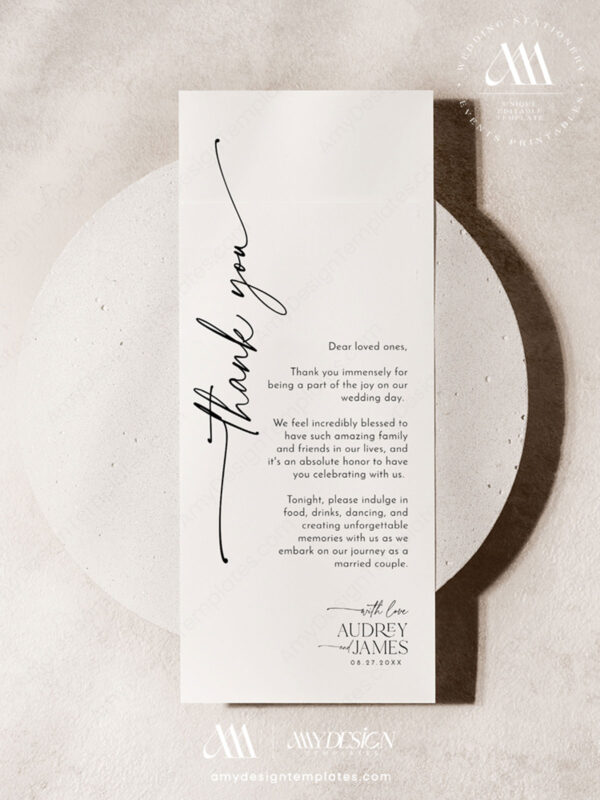 WEDDING STATIONERY
AM
UNIQUE
EDITABLE
TEMPLATE
EVENTS PRINTABLES
thank you
Dear loved ones,
Thank you immensely for
being a part of the joy on our
wedding day.
We feel incredibly blessed to
have such amazing family
and friends in our lives, and
it's an absolute honor to have
you celebrating with us.
Tonight, please indulge in
food, drinks, dancing, and
creating unforgettable
memories with us as we
embark on our journey as a
married couple.
with love
AUDREY
and JAMES
08.27.20XX
AM
AMY DESIGN
TEMPLATES
amydesigntemplates.com